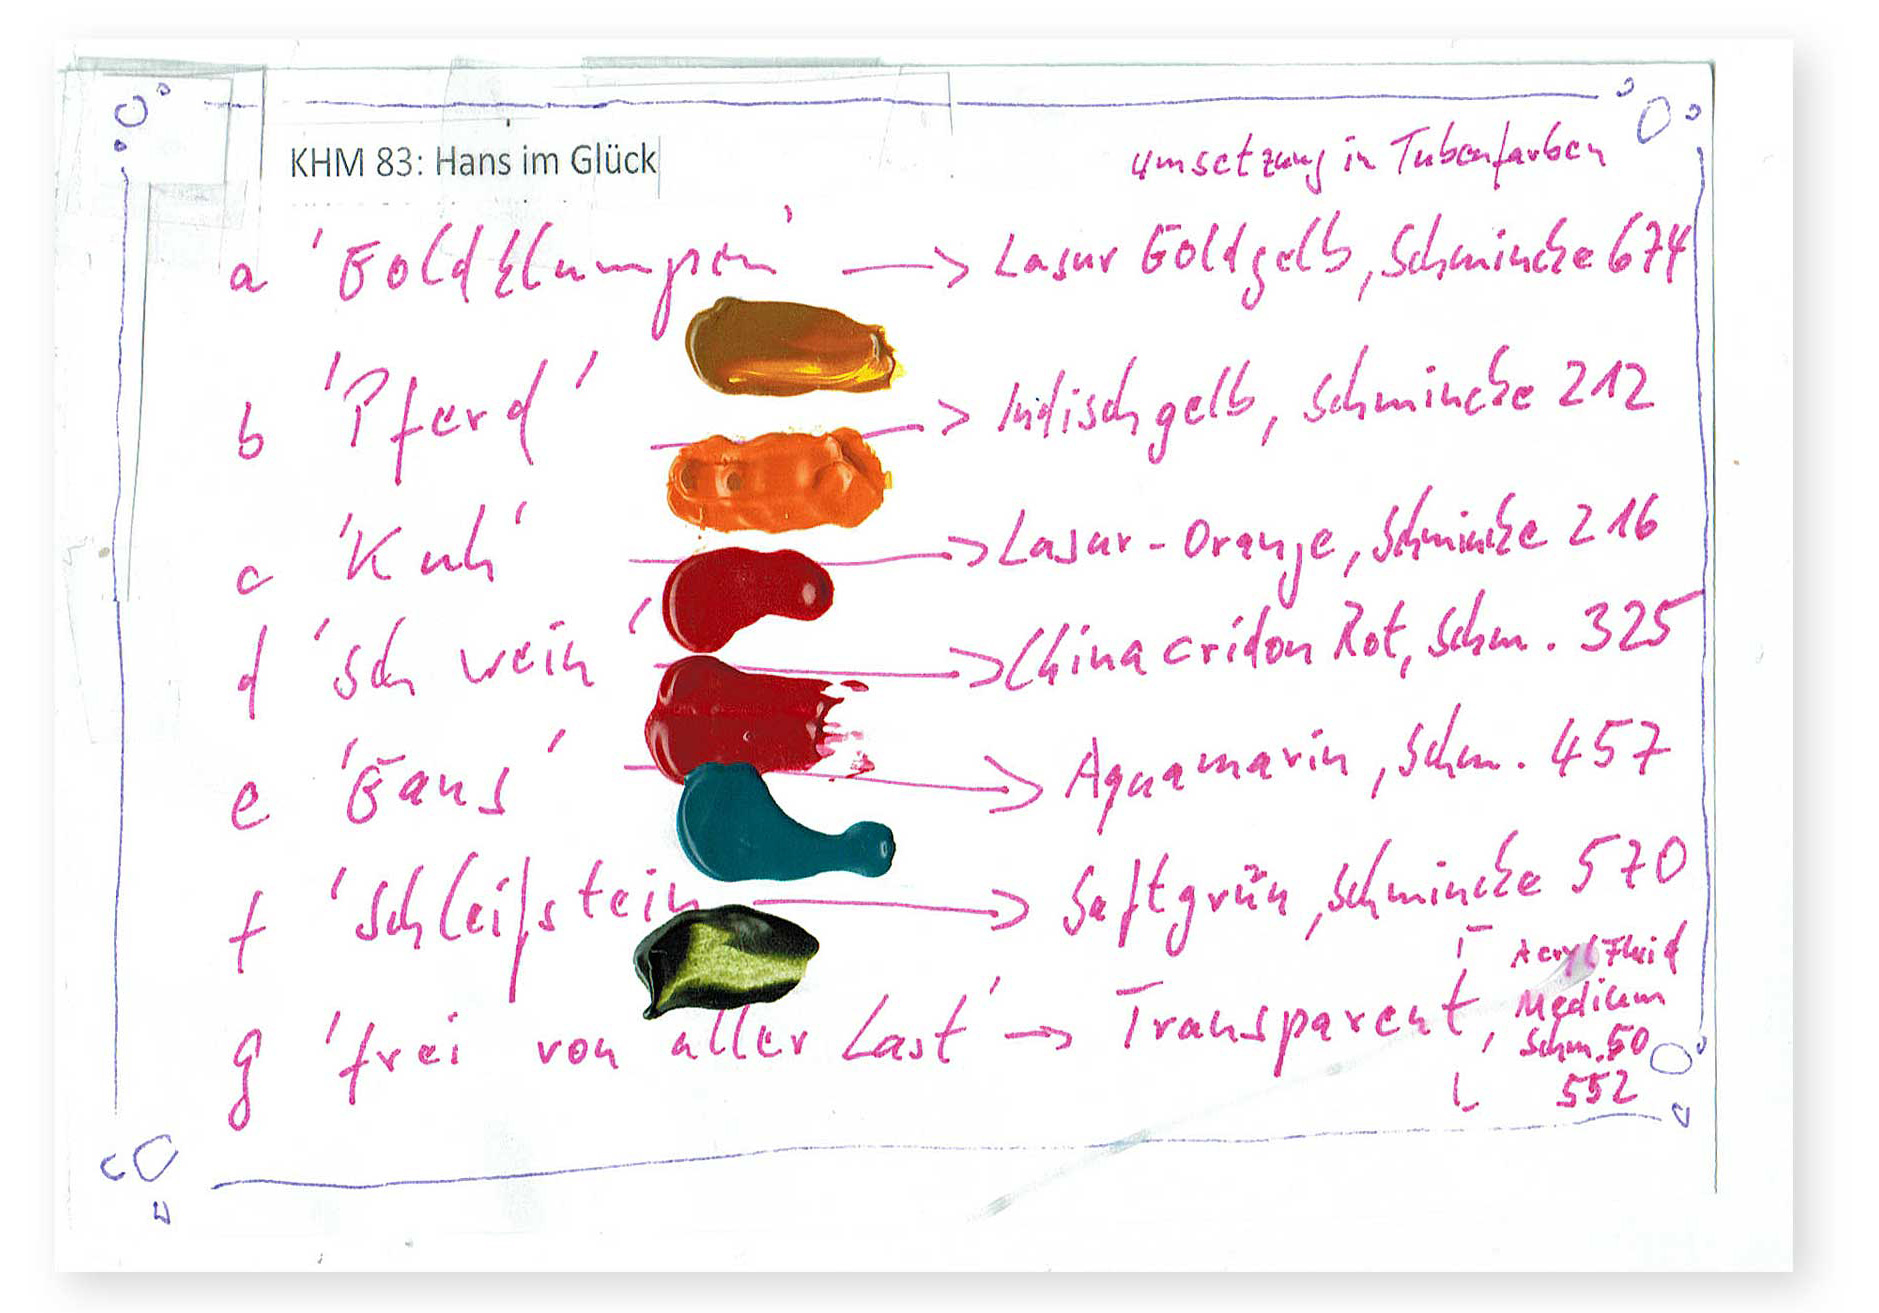 KHM 83: Hans im Glück
Umsetzung in Tubenfarben
a 'Goldklumpen' → Lasur Goldgelb, Schmincke 674
b 'Pferd' → Indischgelb, Schmincke 212
c 'Kuh' → Lasur-Orange, Schmincke 216
d 'Schwein' → Chinacridon Rot, Schm. 325
e 'Gans' → Aquamarin, Schm. 457
f 'Schleifstein → Saftgrün, Schmincke 570
g 'frei von aller Last' → Transparent,
Acryl Fluid
Medium
Schm. 50
552